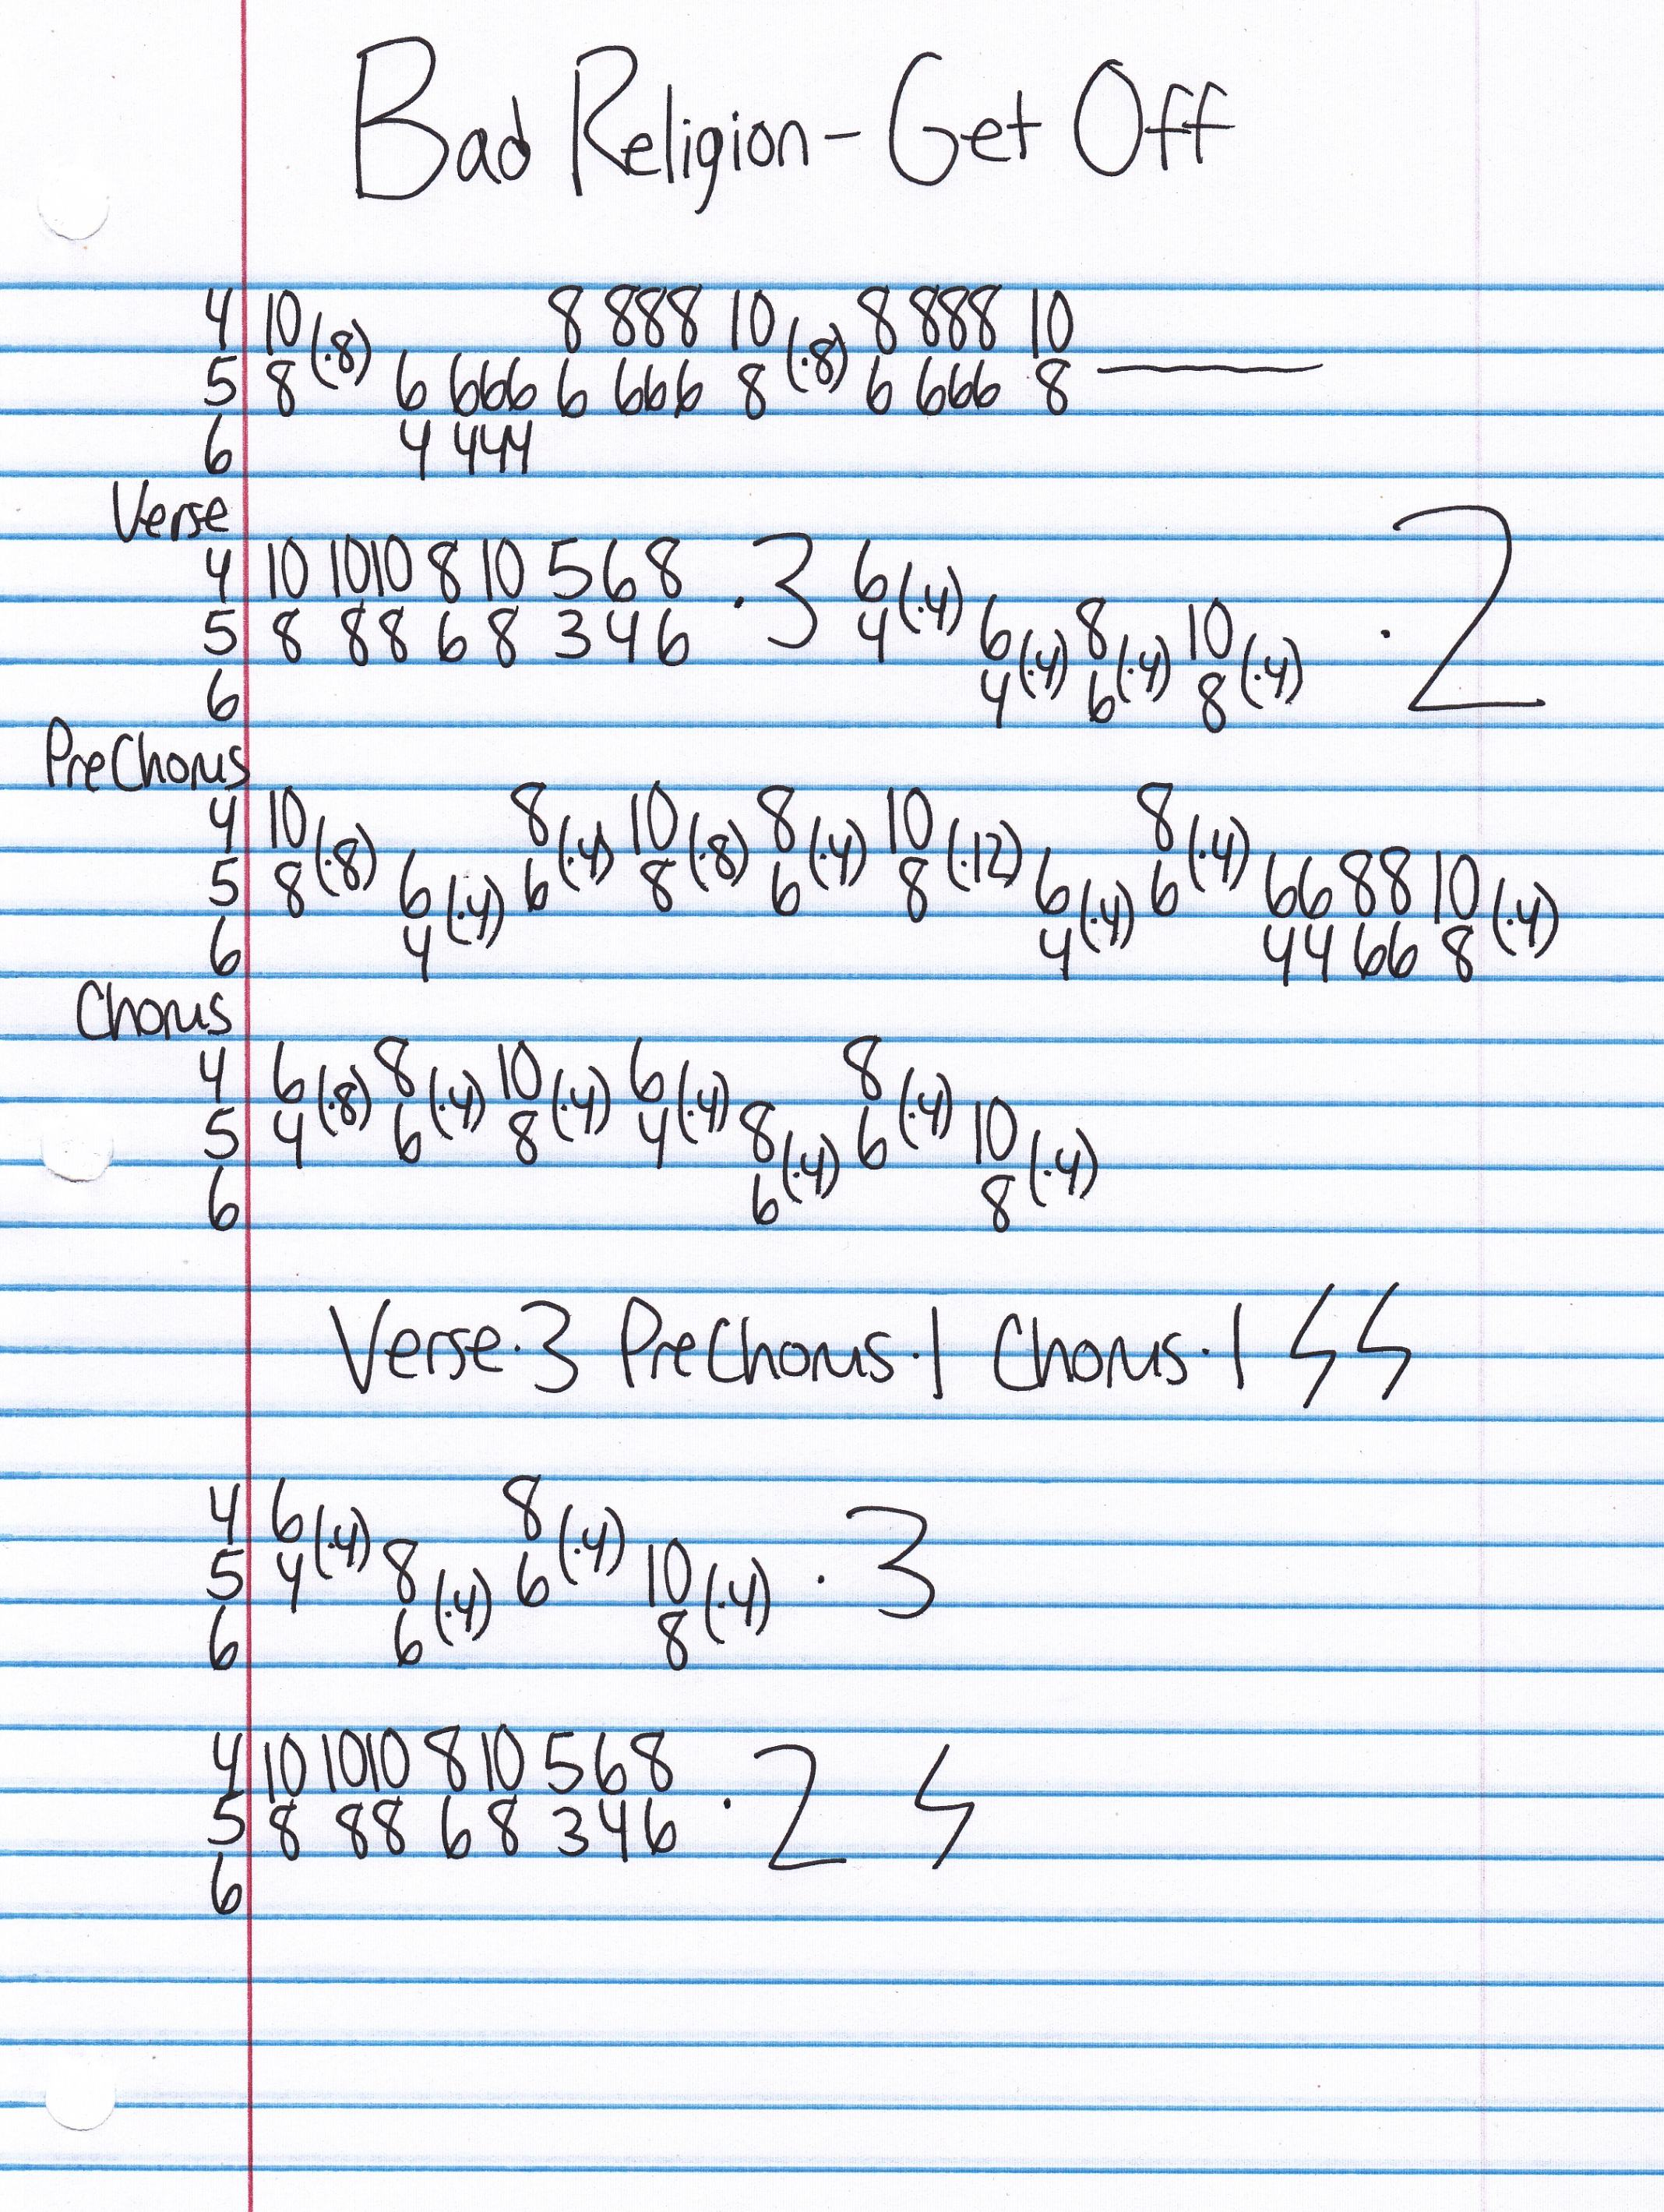 Bad Religion - Get Off
4 10 (·8) 8 888 10 (·8) 8 888 10
5 8 6 666 6 666 8 6 666 8 ———
6 4 444
Verse
4 10 1010 8 10 5 6 8 ·3 6 (·4)
5 8 88 6 8 3 4 6 4 6 (·4) 8 (·4) 10 (·4) ·2
6 4 6 8
PreChorus
4 10 (·8) 8 (·4) 10 (·8) 8 (·4) 10 (·12) 8 (·4)
5 8 6 (·4) 6 8 6 8 6 (·4) 6 66 88 10 (·4)
6 4 4 44 66 8
Chorus
4 6 (·8) 8 (·4) 10 (·4) 6 (·4) 8 (·4)
5 4 6 8 4 8 (·4) 6 10 (·4)
6 6 8
Verse·3 PreChorus·1 Chorus·1
4 6 (·4) 8 (·4)
5 4 8 (·4) 6 10 (·4) ·3
6 6 8
4 10 1010 8 10 5 6 8 ·2
5 8 88 6 8 3 4 6
6